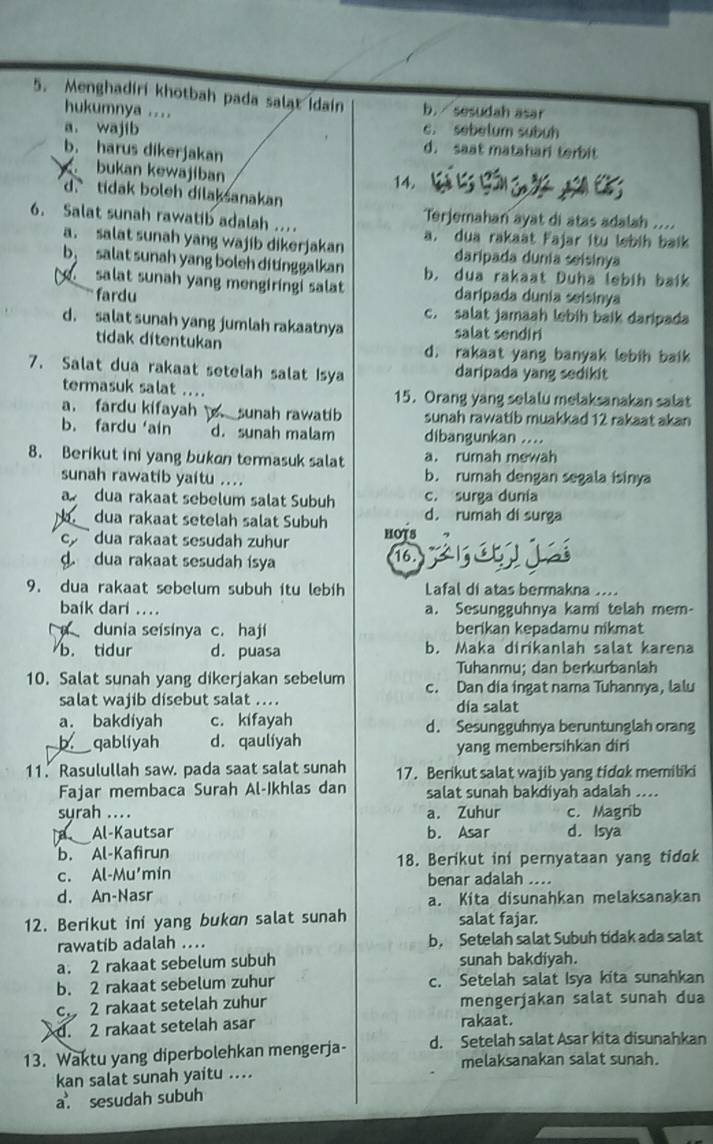 5. Menghadiri khotbah pada salat Idain
hukumnya ....
a. wajib
b. harus dikerjakan
c. bukan kewajiban
d. tidak boleh dilaksanakan
6. Salat sunah rawatib adalah ....
a. salat sunah yang wajib dikerjakan
b. salat sunah yang boleh ditinggalkan
c. salat sunah yang mengiringi salat
fardu
d. salat sunah yang jumlah rakaatnya
tidak ditentukan
7. Salat dua rakaat setelah salat Isya
termasuk salat ....
a. fardu kifayah c. sunah rawatib
b. fardu 'ain d. sunah malam
8. Berikut ini yang bukan termasuk salat
sunah rawatib yaitu ....
a. dua rakaat sebelum salat Subuh
b. dua rakaat setelah salat Subuh
c. dua rakaat sesudah zuhur
d. dua rakaat sesudah isya
9. dua rakaat sebelum subuh itu lebih
baik dari ....
a. dunia seisinya c. haji
b. tidur d. puasa
10. Salat sunah yang dikerjakan sebelum
salat wajib disebut salat ....
a. bakdiyah c. kifayah
b. qabliyah d. qauliyah
11. Rasulullah saw. pada saat salat sunah
Fajar membaca Surah Al-Ikhlas dan
surah ....
a. Al-Kautsar
b. Al-Kafirun
c. Al-Mu'min
d. An-Nasr
12. Berikut ini yang bukan salat sunah
rawatib adalah ....
a. 2 rakaat sebelum subuh
b. 2 rakaat sebelum zuhur
c. 2 rakaat setelah zuhur
d. 2 rakaat setelah asar
13. Waktu yang diperbolehkan mengerja-
kan salat sunah yaitu ....
a. sesudah subuh
b. sesudah asar
c. sebelum subuh
d. saat matahari terbit
14.
Terjemahan ayat di atas adalah ....
a. dua rakaat Fajar itu lebih baik
daripada dunia seisinya
b. dua rakaat Duha lebih baik
daripada dunia seisinya
c. salat jamaah lebih baik daripada
salat sendiri
d. rakaat yang banyak lebih baik
daripada yang sedikit
15. Orang yang selalu melaksanakan salat
sunah rawatib muakkad 12 rakaat akan
dibangunkan ....
a. rumah mewah
b. rumah dengan segala isinya
c. surga dunia
d. rumah di surga
HOTS
16. فَصَلِّ لِرَبِّكَ وَانْحَرْ
Lafal di atas bermakna ....
a. Sesungguhnya kami telah mem-
berikan kepadamu nikmat
b. Maka dirikanlah salat karena
Tuhanmu; dan berkurbanlah
c. Dan dia ingat nama Tuhannya, lalu
dia salat
d. Sesungguhnya beruntunglah orang
yang membersihkan diri
17. Berikut salat wajib yang tidak memiliki
salat sunah bakdiyah adalah ....
a. Zuhur c. Magrib
b. Asar d. Isya
18. Berikut ini pernyataan yang tidak
benar adalah ....
a. Kita disunahkan melaksanakan
salat fajar.
b, Setelah salat Subuh tidak ada salat
sunah bakdiyah.
c. Setelah salat Isya kita sunahkan
mengerjakan salat sunah dua
rakaat.
d. Setelah salat Asar kita disunahkan
melaksanakan salat sunah.